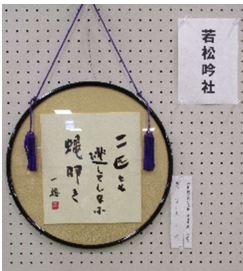 若松吟社
二匹とも
逃してしまふ
蝿叩き